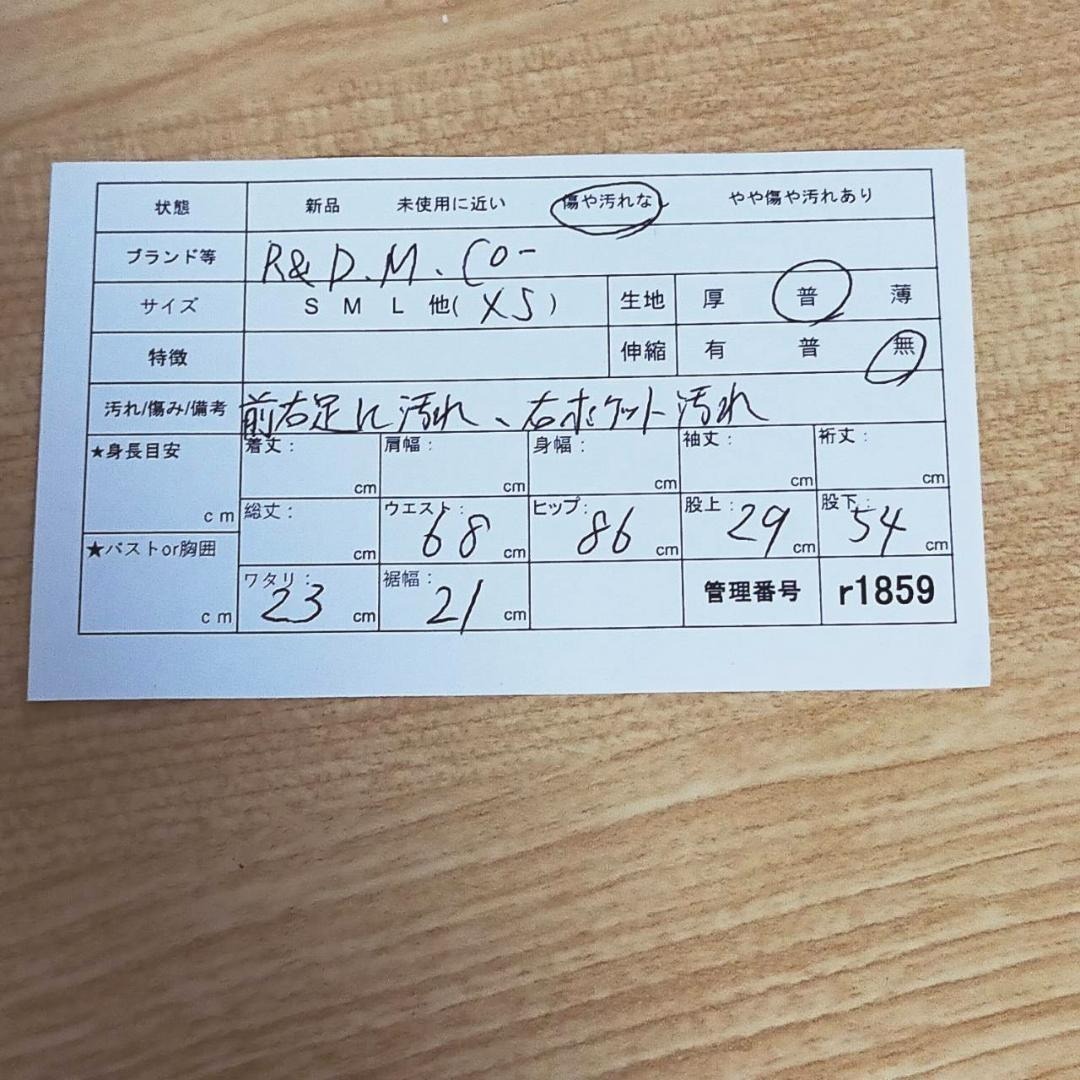 状態 新品 未使用に近い 傷や汚れな やや傷や汚れあり
ブランド等 R&D.M.Co-
サイズ S M L 他( XS ) 生地 厚 普 薄
特徴 伸縮 有 普 無
汚れ/傷み/備考 前右足に汚れ、右ポケット汚れ
★身長目安 cm 着丈: cm 肩幅: cm 身幅: cm 袖丈: cm 裄丈: cm
総丈: cm ウエスト: 68 cm ヒップ: 86 cm 股上: 29 cm 股下: 54 cm
★バストor胸囲 cm ワタリ: 23 cm 裾幅: 21 cm 管理番号 r1859